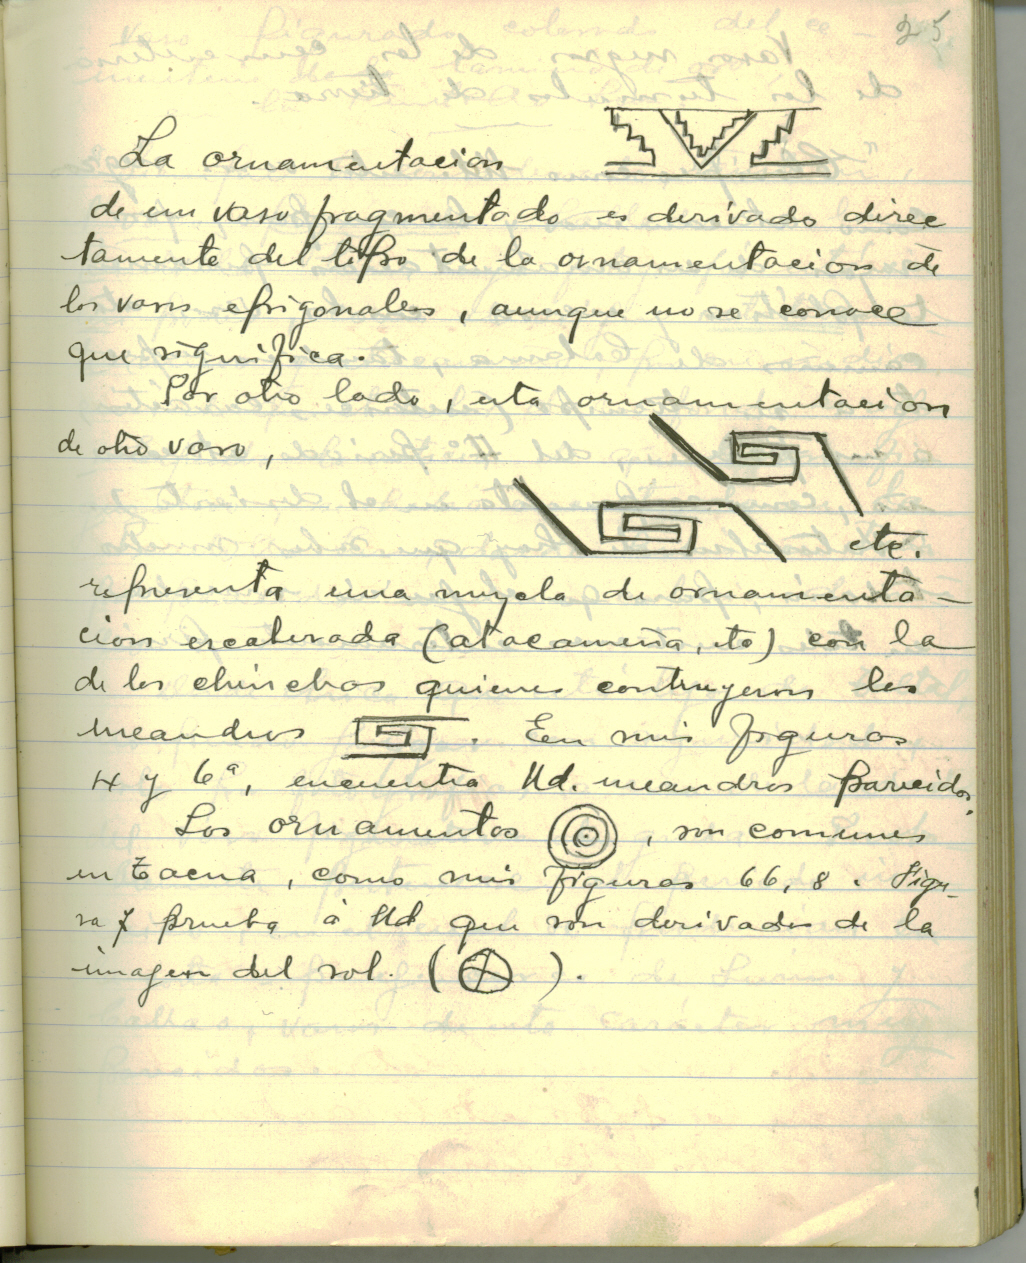 25
La ornamentacion
de un vaso fragmentado es derivado direc
tamente del tipo de la ornamentacion de
los vasos epigonales, aunque no se conoce
que significa.
Por otro lado, esta ornamentacion
de otro vaso,
etc.
representa una mezcla de ornamenta-
cion escalerada (atacameña, etc) con la
de los chinchas quienes contruyeron los
meandros . En mis figuras
4 y 6ª, encuentra Ud. meandros parecidos.
Los ornamentos , son comunes
en Tacna, como mis figuras 66, 8. Figu-
ra 7 prueba á Ud que son derivados de la
imagen del sol. ( ).